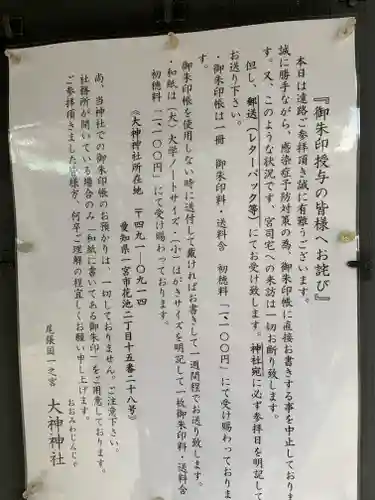 『御朱印授与の皆様へお詫び』
本日は遠路ご参拝頂き誠に有難うございます。
誠に勝手ながら、感染症予防対策の為、御朱印帳に直接お書きする事を中止しており
す。又、このような状況です、宮司宅への来訪は一切お断り致します。
但し、郵送（レターパック等）にてお受け致します。神社宛に必ず参拝日を明記して
お送り下さい。
・御朱印帳は一冊　御朱印料・送料含　初穂料「一、一〇〇円」にて受け賜わっておりま
す。
御朱印帳を使用しない時に送付して戴ければお書きして一週間程でお送り致します。
・和紙は（大）大学ノートサイズ・（小）はがきサイズを明記して一枚御朱印料・送料含
初穂料「一、一〇〇円」にて受け賜わっております。
《大神神社所在地　〒四九一―〇九一四
愛知県一宮市花池二丁目十五番二十八号》
尚、当神社での御朱印帳のお預かりは、一切しておりません。ご注意下さい。
社務所が開いている場合のみ「和紙に書いてある御朱印」をご用意しております。
ご参拝頂きました皆様方、何卒ご理解の程宜しくお願い申し上げます。
尾張国一之宮　大神神社
おおみわじんじゃ